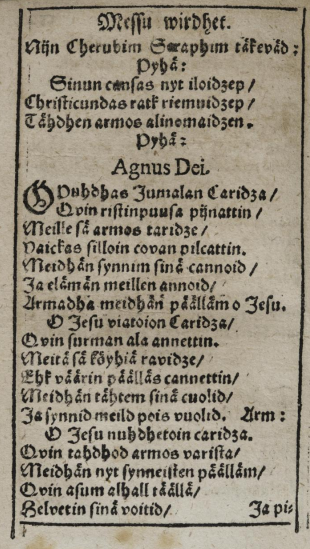 Messu wirdhet.
Nijn Cherubim Seraphim täkeväd:
Pyhä:
Sinun cansas nyt iloidzep/
Christicundas ratk riemuidzep/
Tähdhen armos alinomaidzen.
Pyhä:
Agnus Dei.
O Puhdhas Jumalan Caridza/
Qvin ristinpuusa pijnattin/
Meille sä armos taridze/
Vaickas silloin covan pilcattin.
Meidhän synnim sinä cannoid/
Ja elämän meillen annoid/
Armadha meidhän päälläm o Jesu.
O Jesu viatoion Caridza/
Qvin surman ala annettin.
Meitä sä köyhiä ravidze/
Ehk väärin päälläs cannettin/
Meidhän tähtem sinä cuolid/
Ja synnid meild pois vuolid. Arm:
O Jesu nuhdhetoin caridza.
Qvin tahdhod armos varista/
Meidhän nyt synneisten päälläm/
Qvin asum alhall täällä/
Helvetin sinä voitid/ Ja pi-